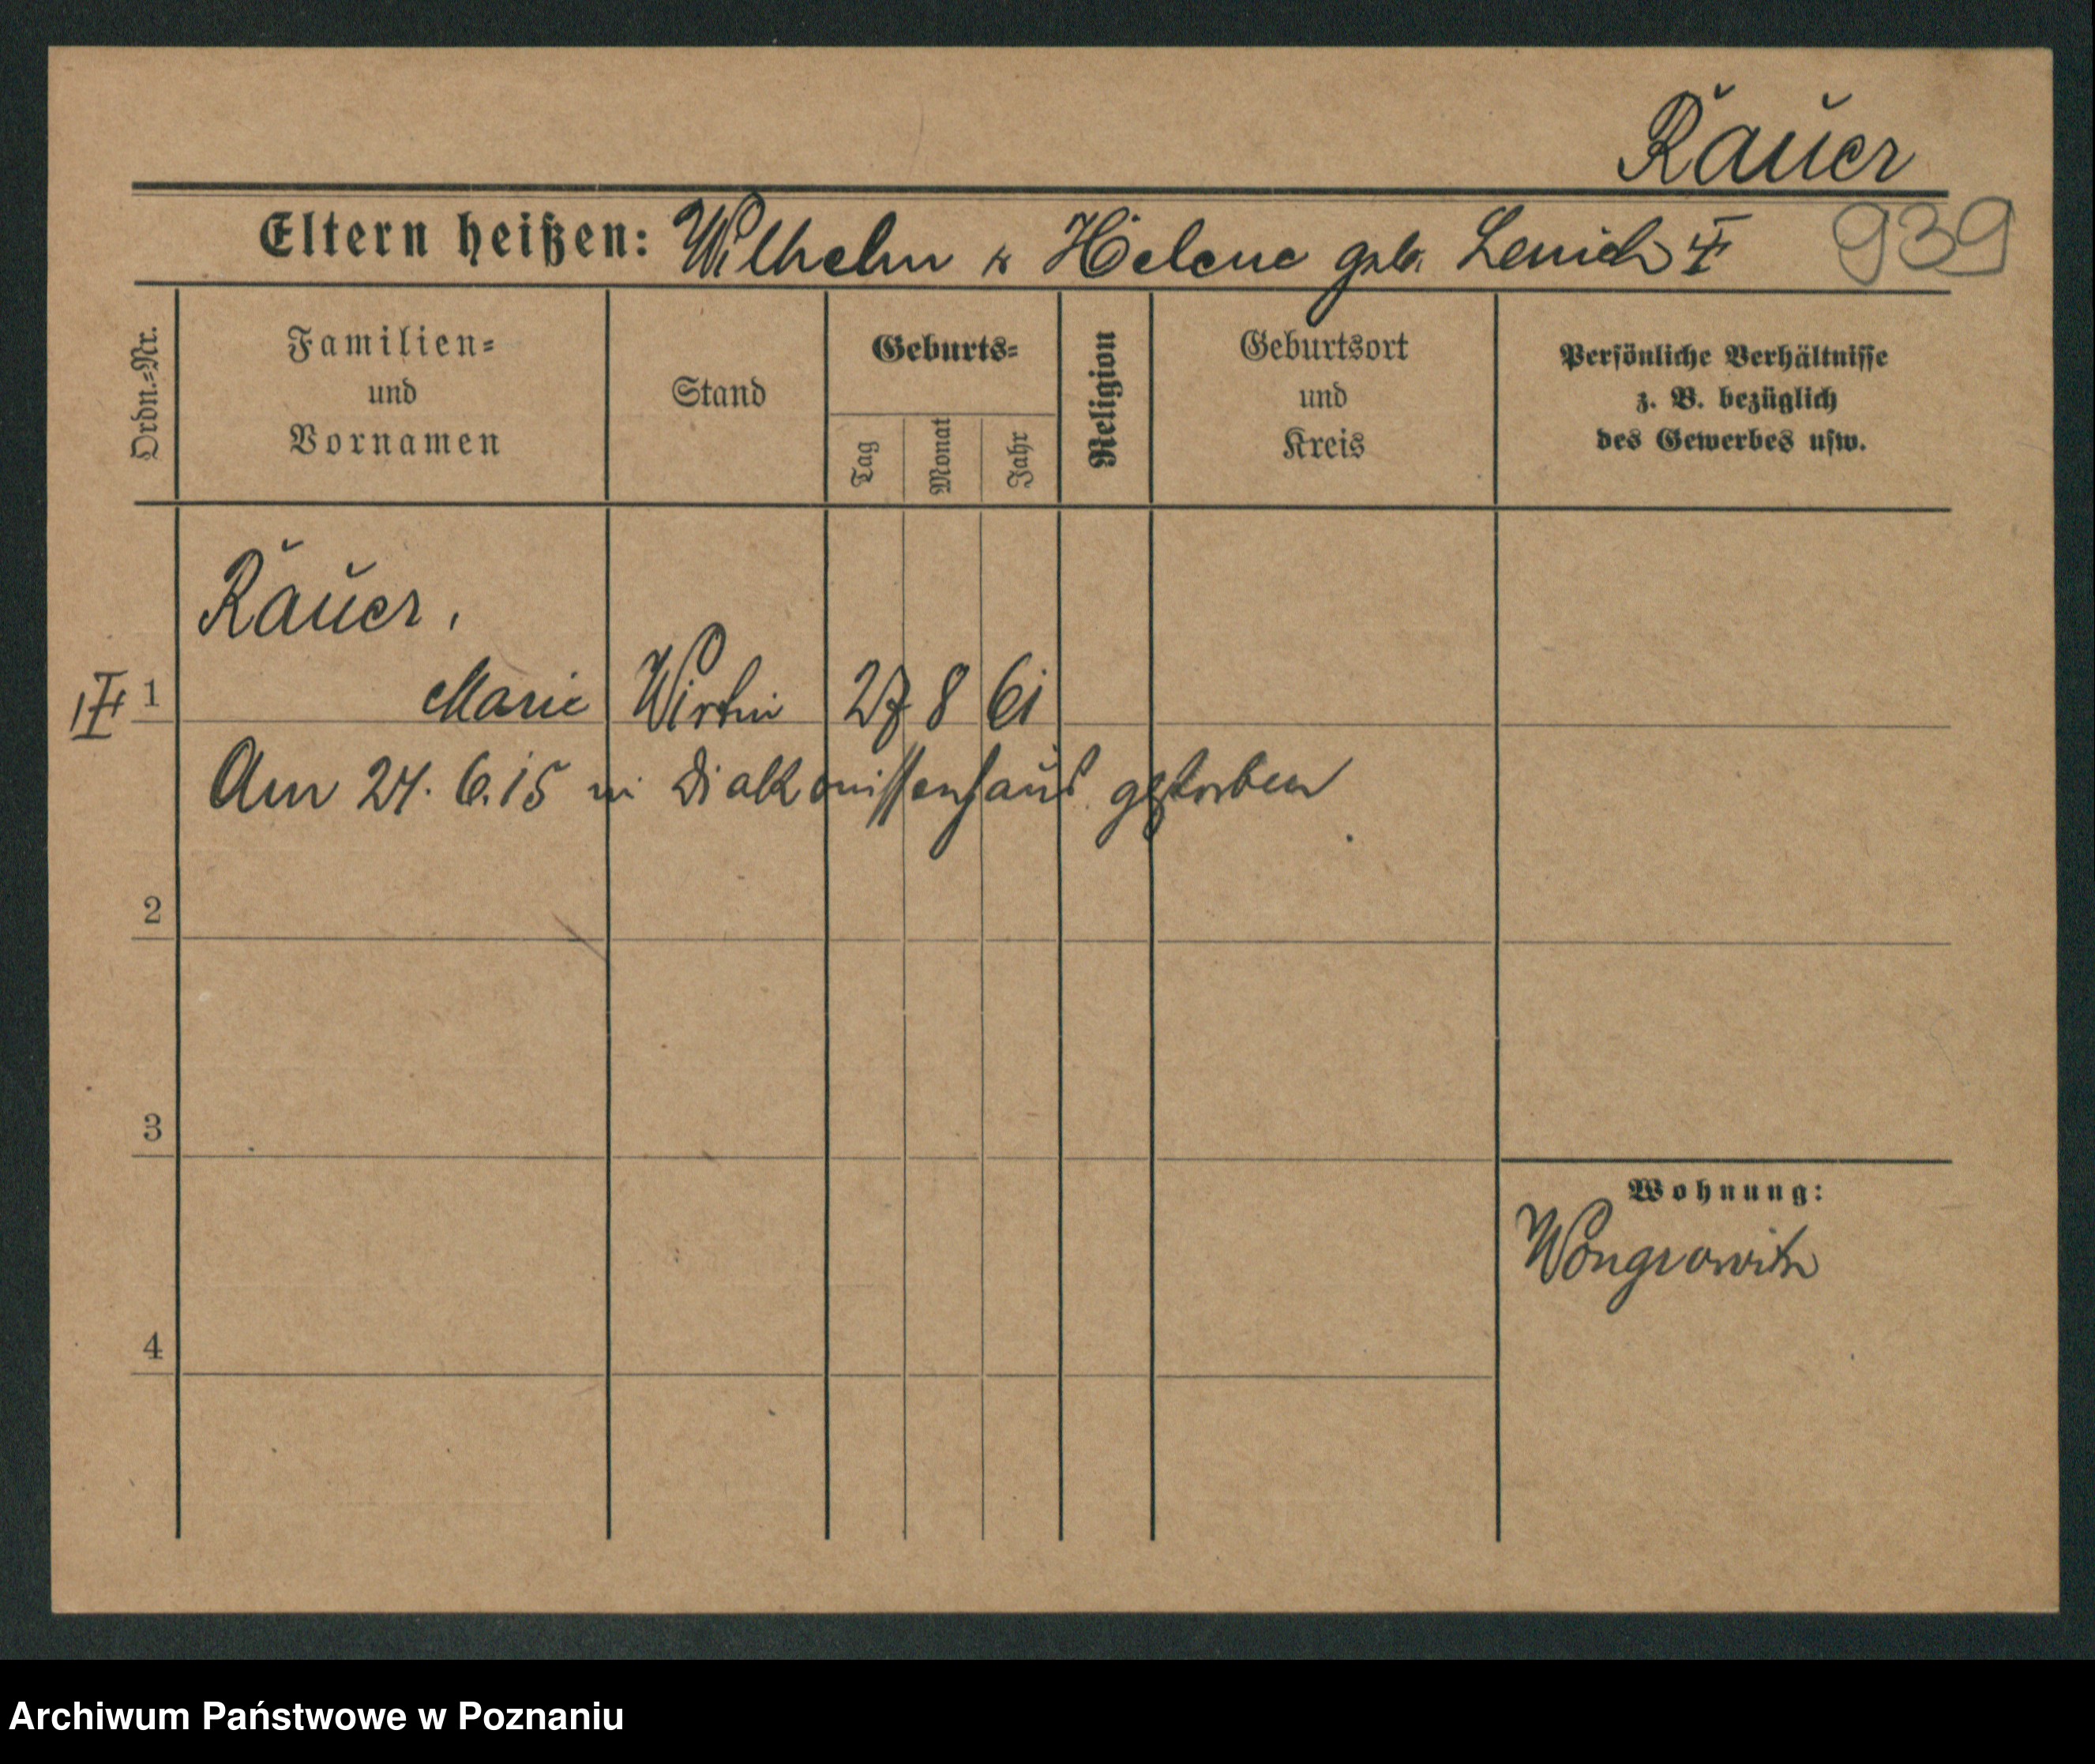 Räuer
Eltern heißen: Wilhelm u Helene geb. Lenich
939
Ordn.=Nr.
Familien=
und
Vornamen
Stand
Geburts=
Tag
Monat
Jahr
Religion
Geburtsort
und
Kreis
Persönliche Verhältnisse
z. B. bezüglich
des Gewerbes usw.
Räuer,
1 Marie Wirtin 27 8 61
Am 24. 6. 15 in Diakonissenhaus gestorben
2
3
Wohnung:
Wongrowitz
4
Archiwum Państwowe w Poznaniu